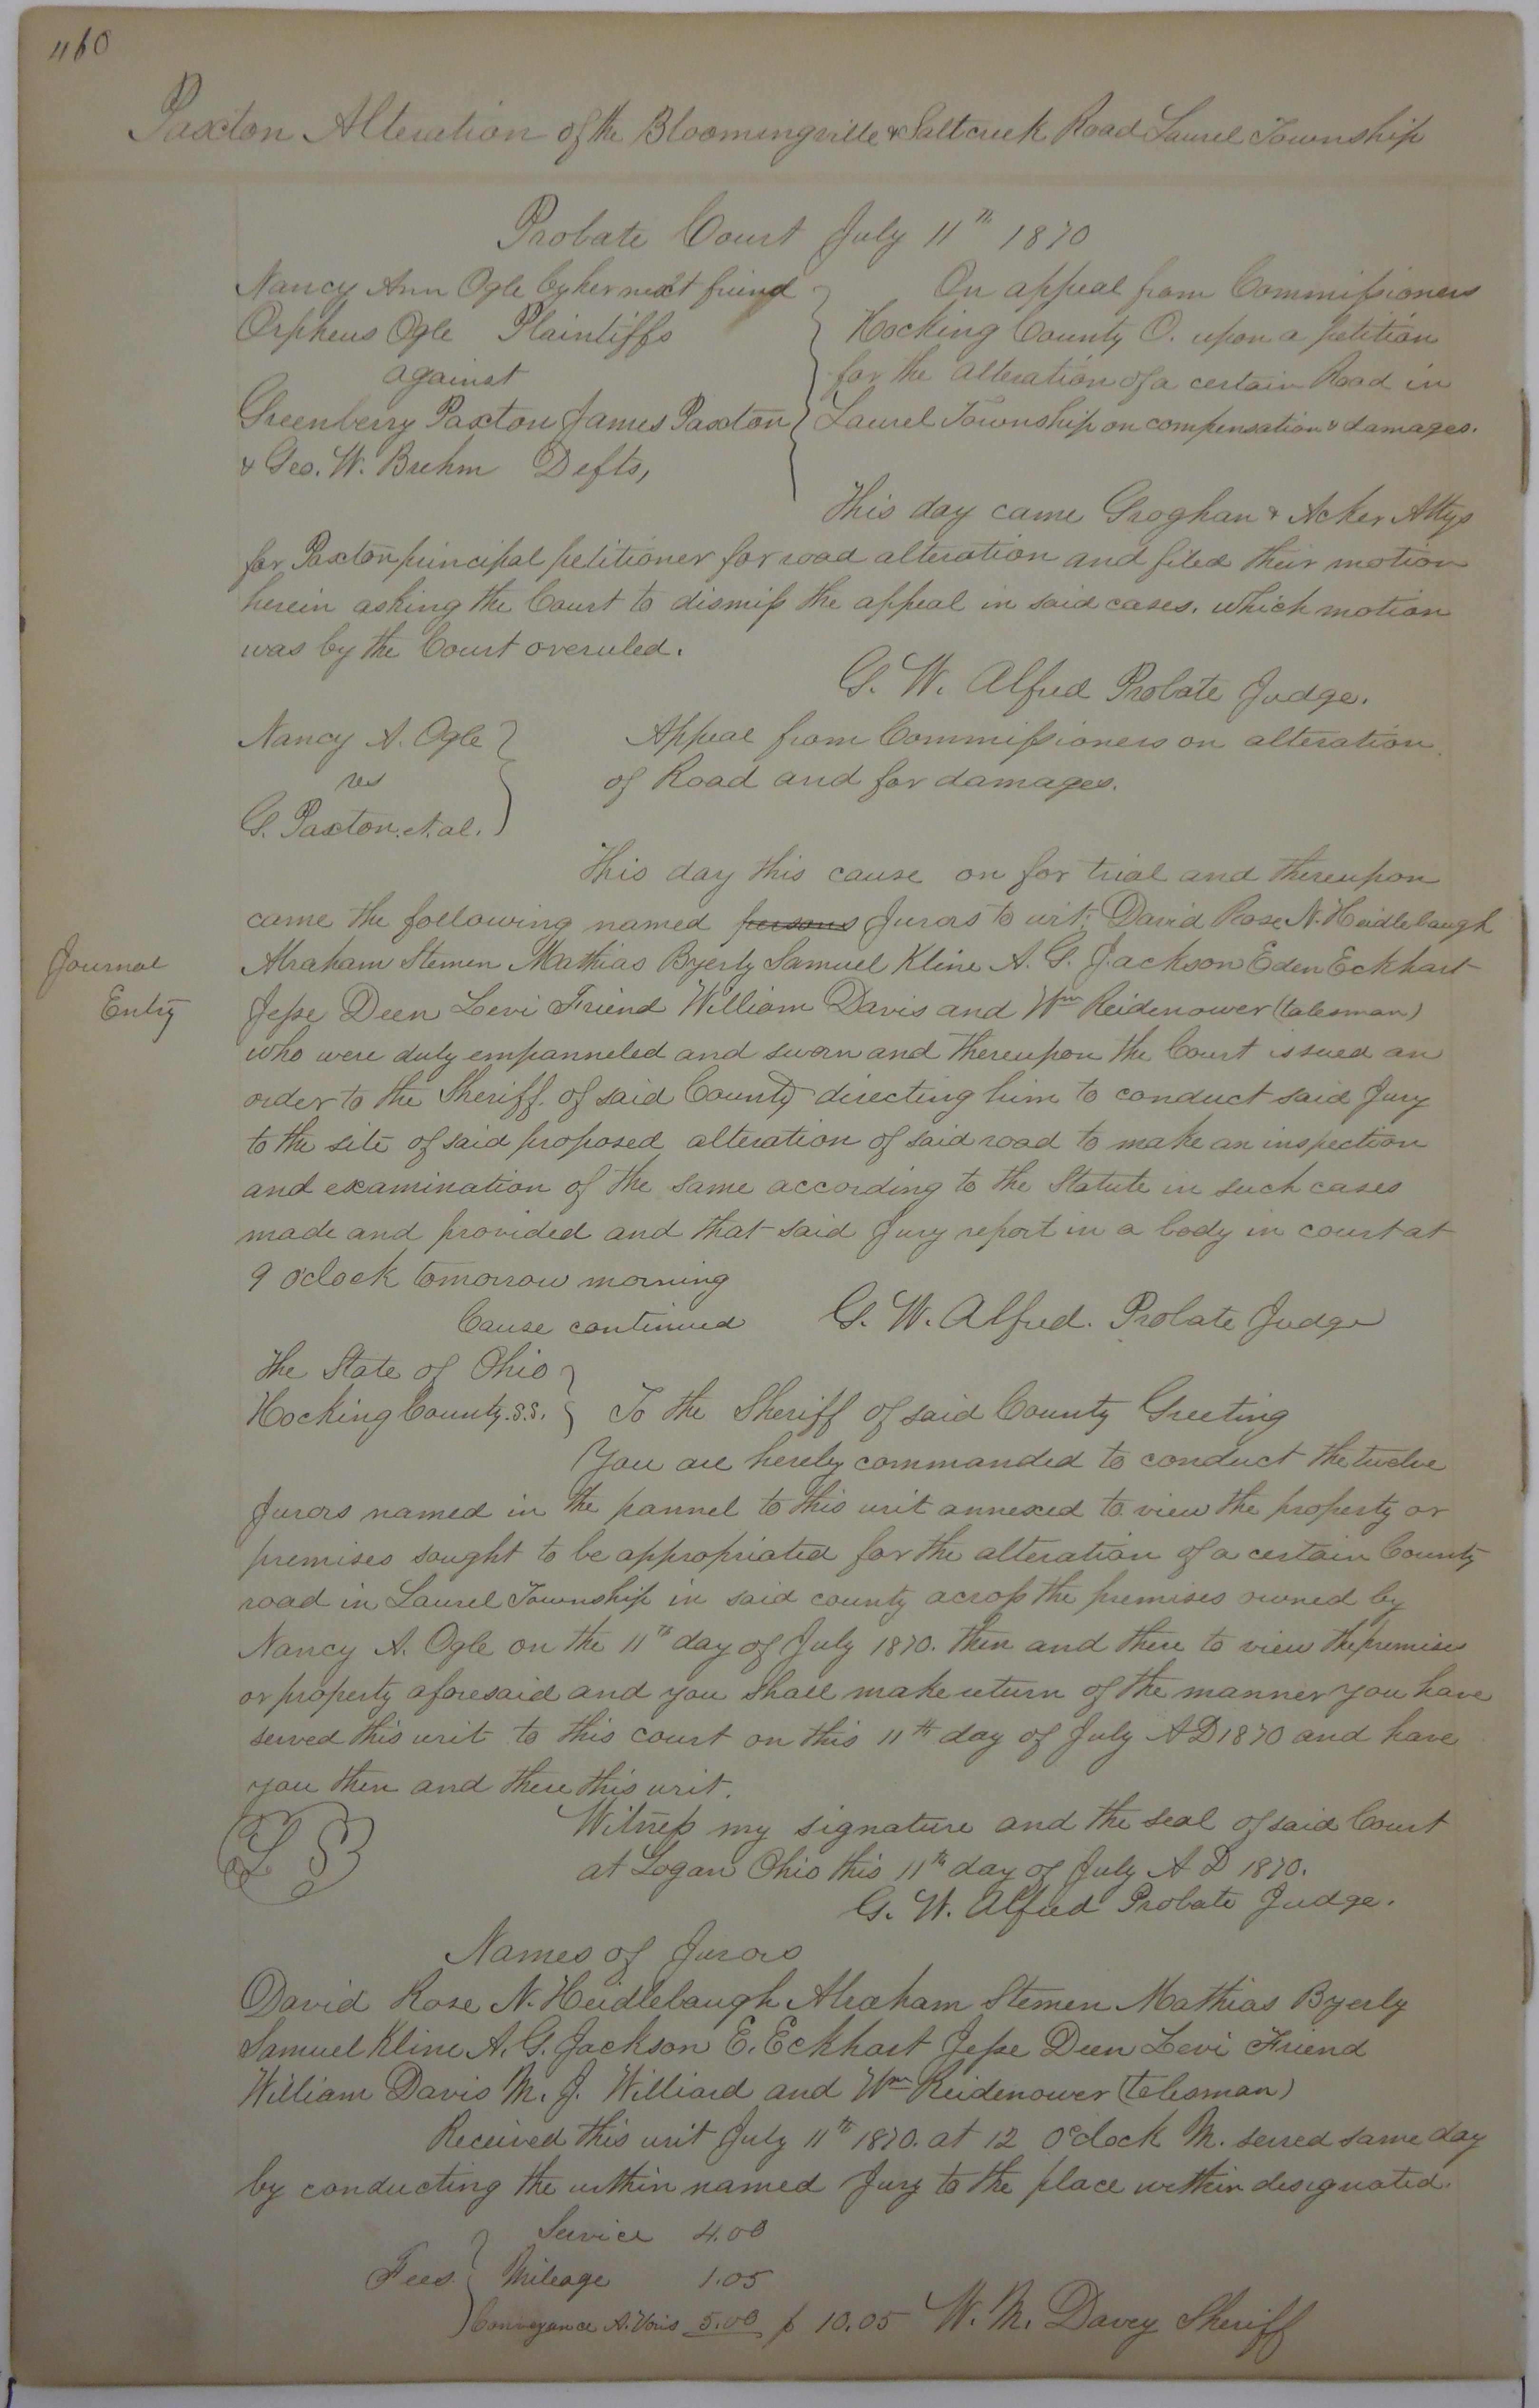 460
Paxton Alteration of the Bloomingville & Saltcreek Road Laurel Township
Probate Court July 11th 1870
Nancy Ann Ogle by her next friend
Orpheus Ogle Plaintiffs
against
Greenberry Paxton James Paxton
& Geo. W. Brehm Defts,
On appeal from Commissioners
Hocking County O. upon a petition
for the alteration of a certain Road in
Laurel Township on compensation & damages.
This day came Groghan & Acker Attys
for Paxton principal petitioner for road alteration and filed their motion
herein asking the Court to dismiss the appeal in said cases. which motion
was by the Court overuled.
G. W. Alfred Probate Judge.
Nancy A. Ogle
vs
G. Paxton et. al.
Appeal from Commissioners on alteration
of Road and for damages.
This day this cause on for trial and thereupon
came the following named persons Jurors to wit; David Rose N. Heidlebaugh
Journal
Entry
Abraham Stemen Mathias Byerly Samuel Kline A. G. Jackson Eden Eckhart
Jesse Deen Levi Friend William Davis and Wm Reidenower (talesman)
who were duly empanneled and sworn and thereupon the Court issued an
order to the Sheriff of said County directing him to conduct said Jury
to the site of said proposed alteration of said road to make an inspection
and examination of the same according to the Statute in such cases
made and provided and that said Jury report in a body in court at
9 o'clock tomorrow morning
Cause continued G. W. Alfred. Probate Judge
The State of Ohio
Hocking County. S.S. To the Sheriff of said County Greeting
You are hereby commanded to conduct the twelve
Jurors named in the pannel to this writ annexed to view the property or
premises sought to be appropriated for the alteration of a certain County
road in Laurel Township in said county across the premises owned by
Nancy A. Ogle on the 11th day of July 1870. then and there to view the premises
or property aforesaid and you shall make return of the manner you have
served this writ to this court on this 11th day of July A D 1870 and have
you then and there this writ.
Witness my signature and the seal of said Court
L S
at Logan Ohio this 11th day of July A D 1870.
G. W. Alfred Probate Judge.
Names of Jurors
David Rose N. Heidlebaugh Abraham Stemen Mathias Byerly
Samuel Kline A. G. Jackson E. Eckhart Jesse Deen Levi Friend
William Davis M. J. Williard and Wm Reidenower (talesman)
Received this writ July 11th 1870. at 12 o'clock M. served same day
by conducting the within named Jury to the place within designated.
Service 4.00
Fees Mileage 1.05
Conveyance A. Voris 5.00 $ 10.05 W. M. Davey Sheriff